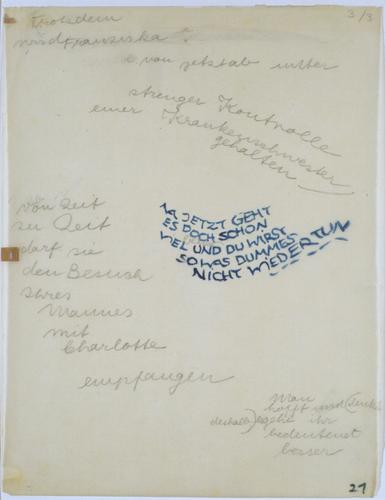 3/3
Trotzdem
wird Franziska
von jetzt ab unter
strenger Kontrolle
einer Krankenschwester
gehalten
von Zeit
zu Zeit
darf sie
den Besuch
ihres
Mannes
mit
Charlotte
empfangen
NA JETZT GEHT
ES DOCH SCHON
VIEL UND DU WIRST
SO WAS DUMMES
NICHT WIEDER TUN
Man
hofft und
deshalb) geht ihr
bedeutend
besser
27